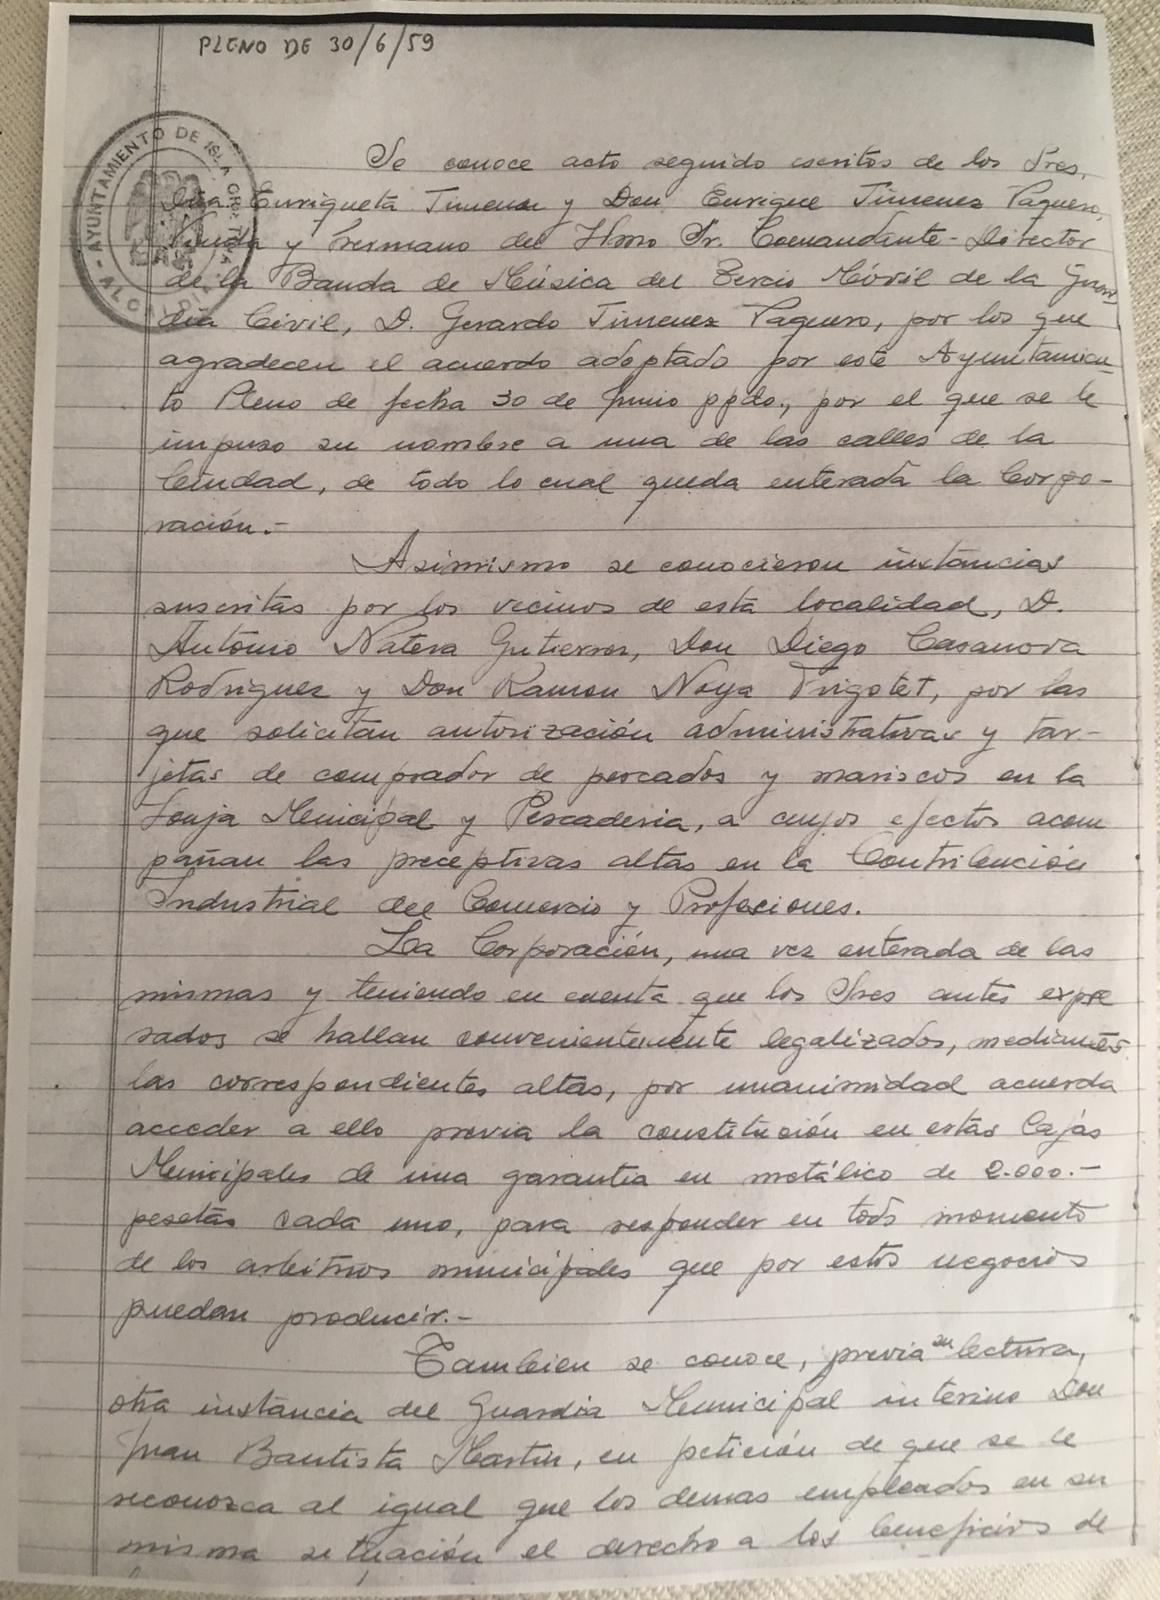 PLENO DE 30/6/59
AYUNTAMIENTO DE ISLA CRISTINA
ALCALDIA
Se conoce acto seguido escritos de los Sres.
Dña Enriqueta Jimenez y Don Enrique Jimenez Vaquero,
Viuda y hermano del Ilmo Sr. Comandante-Director
de la Banda de Música del Tercio Móvil de la Guar
dia Civil, D. Gerardo Jimenez Vaquero, por los que
agradecen el acuerdo adoptado por este Ayuntamien-
to Pleno de fecha 30 de Junio ppdo, por el que se le
impuso su nombre a una de las calles de la
Ciudad, de todo lo cual queda enterada la Corpo-
ración.-
Asimismo se conocieron instancias
suscritas por los vecinos de esta localidad, D.
Antonio Natera Gutierrez, Don Diego Casanova
Rodriguez y Don Ramon Noya Frigolet, por las
que solicitan autorización administrativas y tar-
jetas de comprador de pescados y mariscos en la
Lonja Municipal y Pescaderia, a cuyos efectos acom
pañan las preceptivas altas en la Contribución
Industrial del Comercio y Profesiones.
La Corporación, una vez enterada de las
mismas y teniendo en cuenta que los Sres antes expre
sados se hallan convenientemente legalizados, mediantes
las correspondientes altas, por unanimidad acuerda
acceder a ello previa la constitución en estas Cajas
Municipales de una garantia en metálico de 2.000.-
pesetas cada uno, para responder en todo momento
de los arbitrios municipales que por estos negocios
puedan producir.-
Tambien se conoce, previa su lectura,
otra instancia del Guardia Municipal interino Don
Juan Bautista Martin, en petición de que se le
reconozca al igual que los demas empleados en su
misma situación el derecho a los beneficios de